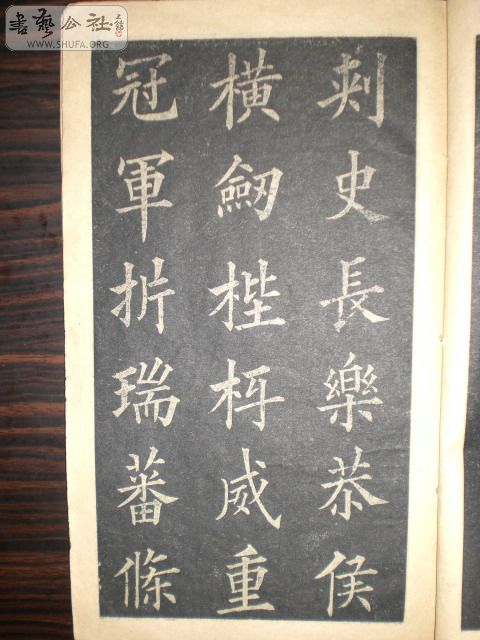 書藝公社
WWW.SHUFA.ORG
刺史長樂恭侯
橫劒梐枑威重
冠軍折瑞蕃條